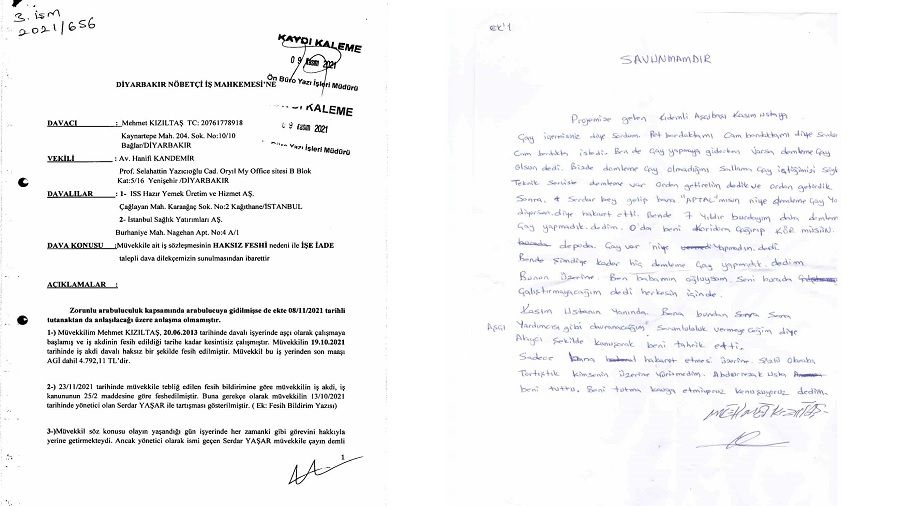 3. İşm
2021/656
KAYDI KALEME
09 Kasım 2021
Ön Büro Yazı İşleri Müdürü
DİYARBAKIR NÖBETÇİ İŞ MAHKEMESİ'NE
KALEME
09 Kasım 2021
Yazı İşleri Müdürü
DAVACI : Mehmet KIZILTAŞ TC: 20761778918
Kaynartepe Mah. 204. Sok. No:10/10
Bağlar/DİYARBAKIR
VEKİLİ : Av. Hanifi KANDEMİR
Prof. Selahattin Yazıcıoğlu Cad. Oryıl My Office sitesi B Blok
Kat:5/16 Yenişehir /DİYARBAKIR
DAVALILAR : 1- ISS Hazır Yemek Üretim ve Hizmet AŞ.
Çağlayan Mah. Karaağaç Sok. No:2 Kağıthane/İSTANBUL
2- İstanbul Sağlık Yatırımları AŞ.
Burhaniye Mah. Nagehan Apt. No:4 A/1
DAVA KONUSU : Müvekkile ait iş sözleşmesinin HAKSIZ FESHİ nedeni ile İŞE İADE
talepli dava dilekçemizin sunulmasından ibarettir
AÇIKLAMALAR :
Zorunlu arabuluculuk kapsamında arabulucuya gidilmişse de ekte 08/11/2021 tarihli
tutanaktan da anlaşılacağı üzere anlaşma olmamıştır.
1-) Müvekkilim Mehmet KIZILTAŞ, 20.06.2013 tarihinde davalı işyerinde aşçı olarak çalışmaya
başlamış ve iş akdinin fesih edildiği tarihe kadar kesintisiz çalışmıştır. Müvekkilin 19.10.2021
tarihinde iş akdi davalı haksız bir şekilde fesih edilmiştir. Müvekkil bu iş yerinden son maaşı
AGİ dahil 4.792,11 TL'dir.
2-) 23/11/2021 tarihinde müvekkile tebliğ edilen fesih bildirimine göre müvekkilin iş akdi, iş
kanununun 25/2 maddesine göre feshedilmiştir. Buna gerekçe olarak müvekkilin 13/10/2021
tarihinde yönetici olan Serdar YAŞAR ile tartışması gösterilmiştir. ( Ek: Fesih Bildirim Yazısı)
3-)Müvekkil söz konusu olayın yaşandığı gün işyerinde her zamanki gibi görevini hakkıyla
yerine getirmekteydi. Ancak yönetici olarak ismi geçen Serdar YAŞAR müvekkile çayım demli
1
ek'1
SAVUNMAMDIR
Projemize gelen Kıdemli Aşçıbaşı Kasım ustaya
Çay içermisiniz diye Sordum. Pet bardaktamı Cam bardaktamı diye Serdar
Cam bardakta istedi. Ben de Çay yapmaya giderken Varsa demleme Çay
Olsun dedi. Bizde demleme Çay olmadığını Sallama Çay içtiğimizi Söyl
Teknik Serviste demleme var Ordan getirelim dedik ve ordan getirdik
Sonra. Serdar bey gelip bana "APTAL"mısın niye demleme Çay Yo
diyorsun.diye hakaret etti. Bende 7 yıldır burdayım daha demleme
Çay yapmadık.dedim. O'da beni Koridora Çağırıp KÖR müsün.
depoda. Çay var niye Yapmadın.dedi.
Bende Şimdiye kadar hiç demleme Çay yapmadık.dedim.
Bunun Üzerine. Ben babamın oğluysam. Seni burada
Çalıştırmayacağım dedi herkesin içinde.
Kasım Ustanın Yanında. Bana bundan Sonra Sana
AŞÇI Yardımcısı gibi davranacağım. Sorumluluk vermeyeceğim diye
Alaycı Şekilde konuşarak beni tahrik etti.
Sadece hakaret etmesi üzerine. Sözlü Olarak
Tartıştık Kimsenin Üzerine Yürümedim. Abdurrezak Usta
beni tuttu. Beni tutma kavga etmiyoruz konuşuyoruz dedim.
MEHMET KIZILTAŞ